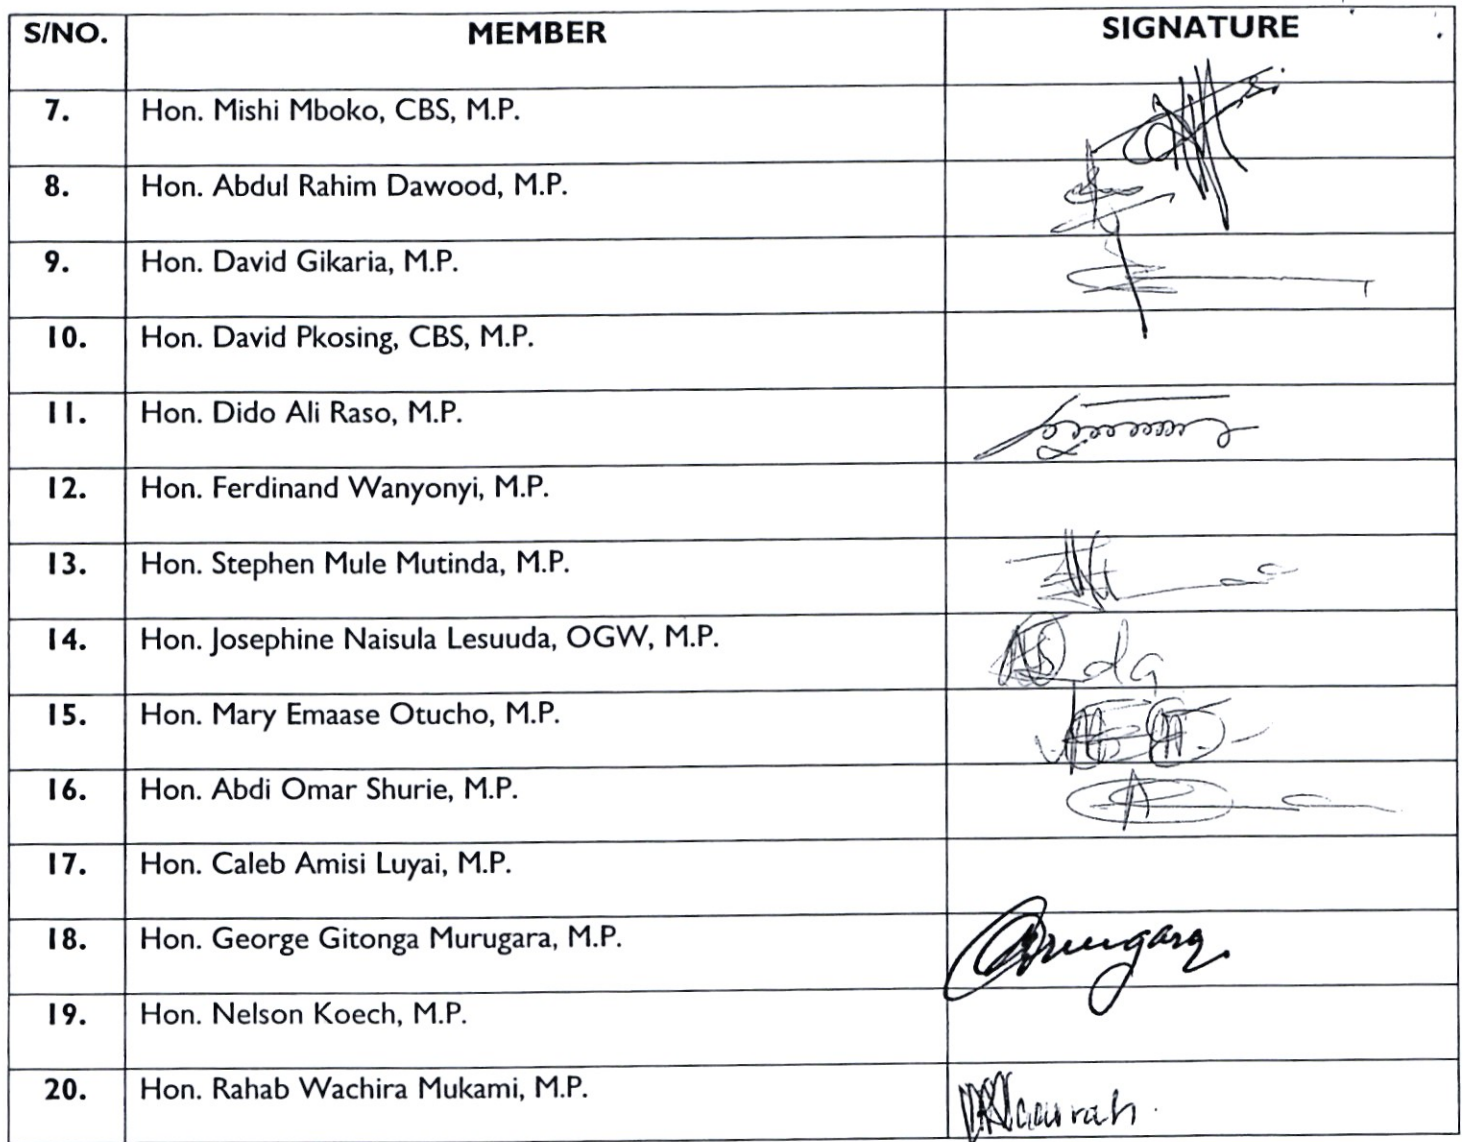 S/NO. MEMBER SIGNATURE
7. Hon. Mishi Mboko, CBS, M.P.
8. Hon. Abdul Rahim Dawood, M.P.
9. Hon. David Gikaria, M.P.
10. Hon. David Pkosing, CBS, M.P.
11. Hon. Dido Ali Raso, M.P.
12. Hon. Ferdinand Wanyonyi, M.P.
13. Hon. Stephen Mule Mutinda, M.P.
14. Hon. Josephine Naisula Lesuuda, OGW, M.P.
15. Hon. Mary Emaase Otucho, M.P.
16. Hon. Abdi Omar Shurie, M.P.
17. Hon. Caleb Amisi Luyai, M.P.
18. Hon. George Gitonga Murugara, M.P.
19. Hon. Nelson Koech, M.P.
20. Hon. Rahab Wachira Mukami, M.P.